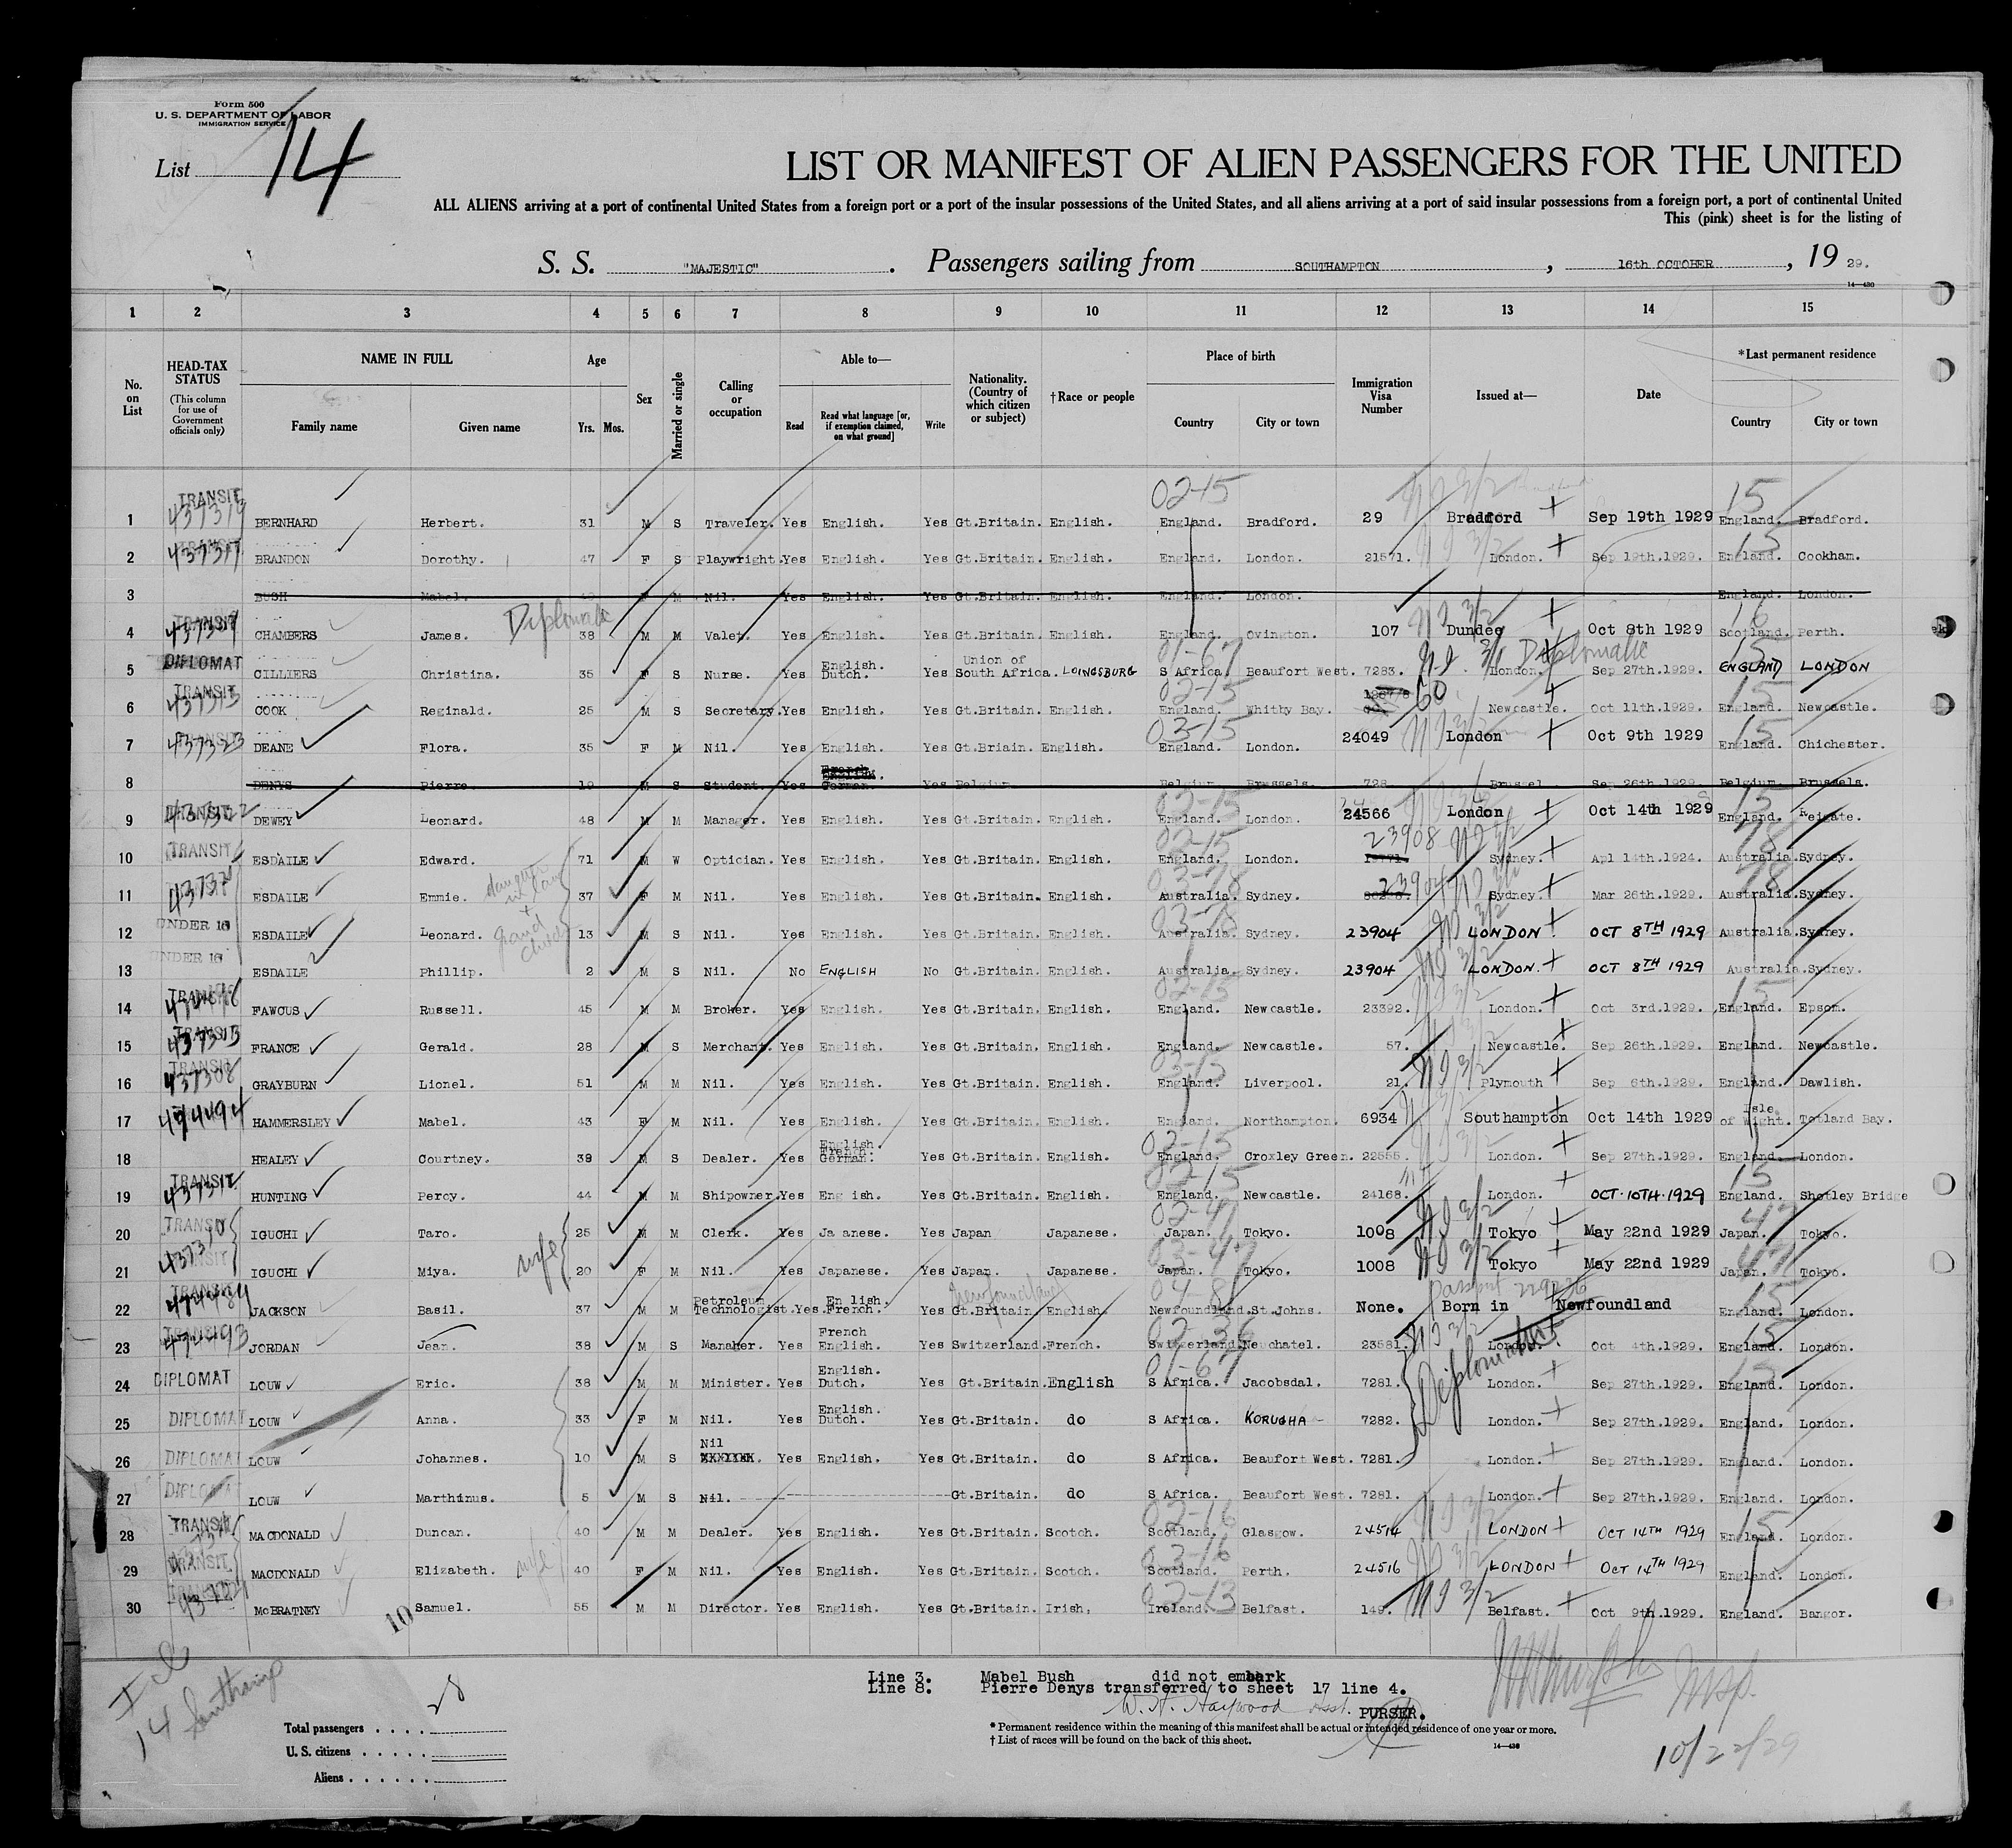 Form 500
U. S. DEPARTMENT OF LABOR
IMMIGRATION SERVICE
List 14
LIST OR MANIFEST OF ALIEN PASSENGERS FOR THE UNITED
ALL ALIENS arriving at a port of continental United States from a foreign port or a port of the insular possessions of the United States, and all aliens arriving at a port of said insular possessions from a foreign port, a port of continental United
This (pink) sheet is for the listing of
S. S. "MAJESTIC". Passengers sailing from SOUTHAMPTON, 16th OCTOBER, 19 29.
14—430
1 2 3 4 5 6 7 8 9 10 11 12 13 14 15
No. on List HEAD-TAX STATUS (This column for use of Government officials only) NAME IN FULL Family name Given name Age Yrs. Mos. Sex Married or single Calling or occupation Able to— Read Read what language [or, if exemption claimed, on what ground] Write Nationality. (Country of which citizen or subject) †Race or people Place of birth Country City or town Immigration Visa Number Issued at— Date *Last permanent residence Country City or town
02-15 15
1 TRANSIT BERNHARD Herbert. 31 M S Traveler. Yes English. Yes Gt.Britain. English. England. Bradford. 29 Bradford Sep 19th 1929 England. Bradford.
2 BRANDON Dorothy. 47 F S Playwright. Yes English. Yes Gt.Britain. English. England. London. 21571. London. Sep 19th.1929. England. Cookham.
3 BUSH Mabel. F M Nil. Yes English. Yes Gt.Britain. English. England. London. England. London.
Diplomatic
4 TRANSIT CHAMBERS James. 38 M M Valet. Yes English. Yes Gt.Britain. English. England. Ovington. 107 Dundee Oct 8th 1929 Scotland. Perth.
01-67 Diplomatic
5 DIPLOMAT CILLIERS Christina. 35 F S Nurse. Yes English. Dutch. Yes Union of South Africa. LOINGSBURG S Africa. Beaufort West. 7283. London. Sep 27th.1929. ENGLAND LONDON
02-15 60 15
6 TRANSIT 437313 COOK Reginald. 25 M S Secretary. Yes English. Yes Gt.Britain. English. England. Whitby Bay. Newcastle. Oct 11th.1929. England. Newcastle.
03-15 15
7 437323 DEANE Flora. 35 F M Nil. Yes English. Yes Gt.Briain. English. England. London. 24049 London Oct 9th 1929 England. Chichester.
8 DENYS Pierre. 19 M S Student. Yes German. Yes Belgium Belgium Brussels. 728 Brussel Sep 26th 1929 Belgium. Brussels.
02-15 15
9 TRANSIT DEWEY Leonard. 48 M M Manager. Yes English. Yes Gt.Britain. English. England. London. 24566 London Oct 14th 1929 England. Reigate.
02-15 23908 78
10 TRANSIT ESDAILE Edward. 71 M W Optician. Yes English. Yes Gt.Britain. English. England. London. Sydney. Apl 14th.1924. Australia. Sydney.
daughter in law + grand child
11 ESDAILE Emmie. 37 F M Nil. Yes English. Yes Gt.Britain. English. Australia. Sydney. 23904 Sydney. Mar 26th.1929. Australia. Sydney.
12 UNDER 16 ESDAILE Leonard. 13 M S Nil. Yes English. Yes Gt.Britain. English. Australia. Sydney. 23904 LONDON. OCT 8TH 1929 Australia. Sydney.
13 UNDER 16 ESDAILE Phillip. 2 M S Nil. No ENGLISH No Gt.Britain. English. Australia. Sydney. 23904 LONDON. OCT 8TH 1929 Australia. Sydney.
02-15 15
14 TRANSIT FAWCUS Russell. 45 M M Broker. Yes English. Yes Gt.Britain. English. England. Newcastle. 23392. London. Oct 3rd.1929. England. Epsom.
15 TRANSIT 437315 FRANCE Gerald. 28 M S Merchant. Yes English. Yes Gt.Britain. English. England. Newcastle. 57. Newcastle. Sep 26th.1929. England. Newcastle.
03-15
16 TRANSIT 437308 GRAYBURN Lionel. 51 M M Nil. Yes English. Yes Gt.Britain. English. England. Liverpool. 21. Plymouth Sep 6th.1929. England. Dawlish.
17 474494 HAMMERSLEY Mabel. 43 F M Nil. Yes English. Yes Gt.Britain. English. England. Northampton. 6934 Southampton Oct 14th 1929 Isle of Wight. Totland Bay.
02-15
18 HEALEY Courtney. 39 M S Dealer. Yes English. French. German. Yes Gt.Britain. English. England. Croxley Green. 22555. London. Sep 27th.1929. England. London.
02-15 15
19 TRANSIT HUNTING Percy. 44 M M Shipowner. Yes Eng ish. Yes Gt.Britain. English. England. Newcastle. 24168. London. OCT.10TH.1929 England. Shotley Bridge
wife
20 TRANSIT 437310 IGUCHI Taro. 25 M M Clerk. Yes Ja anese. Yes Japan Japanese. Japan. Tokyo. 1008 Tokyo May 22nd 1929 Japan. Tokyo.
03-47
21 IGUCHI Miya. 20 F M Nil. Yes Japanese. Yes Japan. Japanese. Japan. Tokyo. 1008 Tokyo May 22nd 1929 Japan. Tokyo.
Newfoundland 04-81 Passport 15
22 TRANSIT JACKSON Basil. 37 M M Petroleum Technologist. Yes En lish. French. Yes Gt.Britain English. Newfoundland. St.Johns. None. Born in Newfoundland England. London.
02-36 15
23 JORDAN Jean. 38 M S Manager. Yes French English. Yes Switzerland. French. Switzerland. Neuchatel. 23581. London. Oct 4th.1929. England. London.
01-67 Diplomatic 15
24 DIPLOMAT LOUW Eric. 38 M M Minister. Yes English. Dutch. Yes Gt.Britain. English S Africa. Jacobsdal. 7281. London. Sep 27th.1929. England. London.
25 DIPLOMAT LOUW Anna. 33 F M Nil. Yes English. Dutch. Yes Gt.Britain. do S Africa. KORUGHA 7282. London. Sep 27th.1929. England. London.
26 DIPLOMAT LOUW Johannes. 10 M S Nil Yes English. Yes Gt.Britain. do S Africa. Beaufort West. 7281. London. Sep 27th.1929. England. London.
27 DIPLOMAT LOUW Marthinus. 5 M S Nil. Gt.Britain. do S Africa. Beaufort West. 7281. London. Sep 27th.1929. England. London.
02-16 15
28 TRANSIT MACDONALD Duncan. 40 M M Dealer. Yes English. Yes Gt.Britain. Scotch. Scotland. Glasgow. 24514 LONDON OCT 14TH 1929 England. London.
wife 03-16
29 TRANSIT MACDONALD Elizabeth. 40 F M Nil. Yes English. Yes Gt.Britain. Scotch. Scotland. Perth. 24516 LONDON OCT 14TH 1929 England. London.
02-13
30 McBRATNEY Samuel. 55 M M Director. Yes English. Yes Gt.Britain. Irish, Ireland. Belfast. 149. Belfast. Oct 9th.1929. England. Bangor.
10
14 Southamp
Line 3. Mabel Bush did not embark
Line 8. Pierre Denys transferred to sheet 17 line 4.
W. H. Haywood Asst. PURSER.
Total passengers 28
U. S. citizens
Aliens
* Permanent residence within the meaning of this manifest shall be actual or intended residence of one year or more.
† List of races will be found on the back of this sheet.
14—430
10/22/29